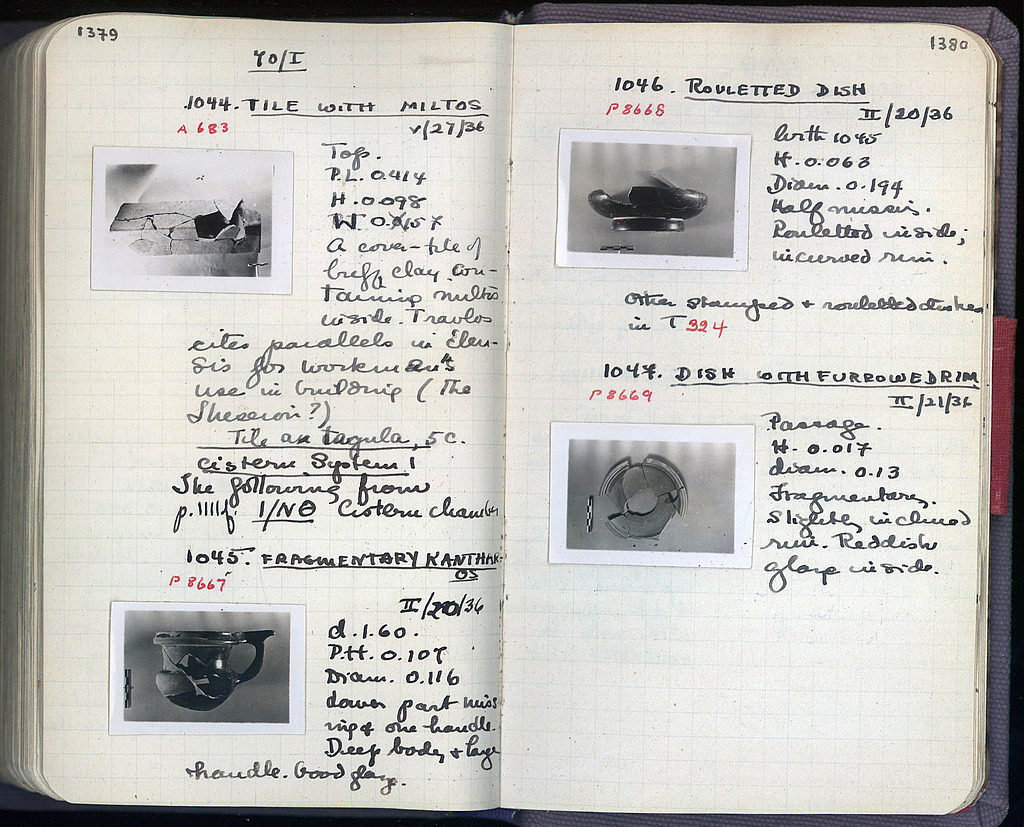 1379
70/I
1044. TILE WITH MILTOS
A 683
V/27/36
Top.
P.L. 0.414
H. 0.098
W. 0.157
A cover-tile of
buff clay con-
taining miltos
inside. Travlos
cites parallels in Eleu-
sis for workmen's
use in building (The
Theseion?)
Tile an tegula, 5 c.
Cistern System 1
The following from
p. 1111f. 1/ΝΘ Cistern chamber
1045. FRAGMENTARY KANTHAR-
OS
P 8667
II/20/36
d. 1.60.
P.H. 0.107
Diam. 0.116
Lower part miss
ing & one handle.
Deep body & large
handle. Good glaze.
1380
1046. ROULETTED DISH
P 8668
II/20/36
With 1045
H. 0.063
Diam. 0.194
Half missing.
Rouletted inside;
incurved rim.
Other stamped + rouletted dishes
in T 324
1047. DISH WITH FURROWED RIM
P 8669
II/21/36
Passage.
H. 0.017
diam. 0.13
Fragmentary.
Slightly inclined
rim. Reddish
glaze inside.